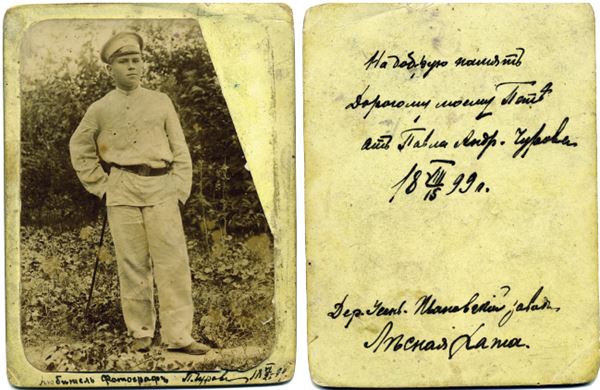 Любитель Фотографъ П. Чуровъ
На добрую память
Дорогому моему Петѣ
отъ Павла Андр. Чурова
18 VIII/15 99 г.
Дер. Усень-Ивановскій завод
Лѣсная дача.